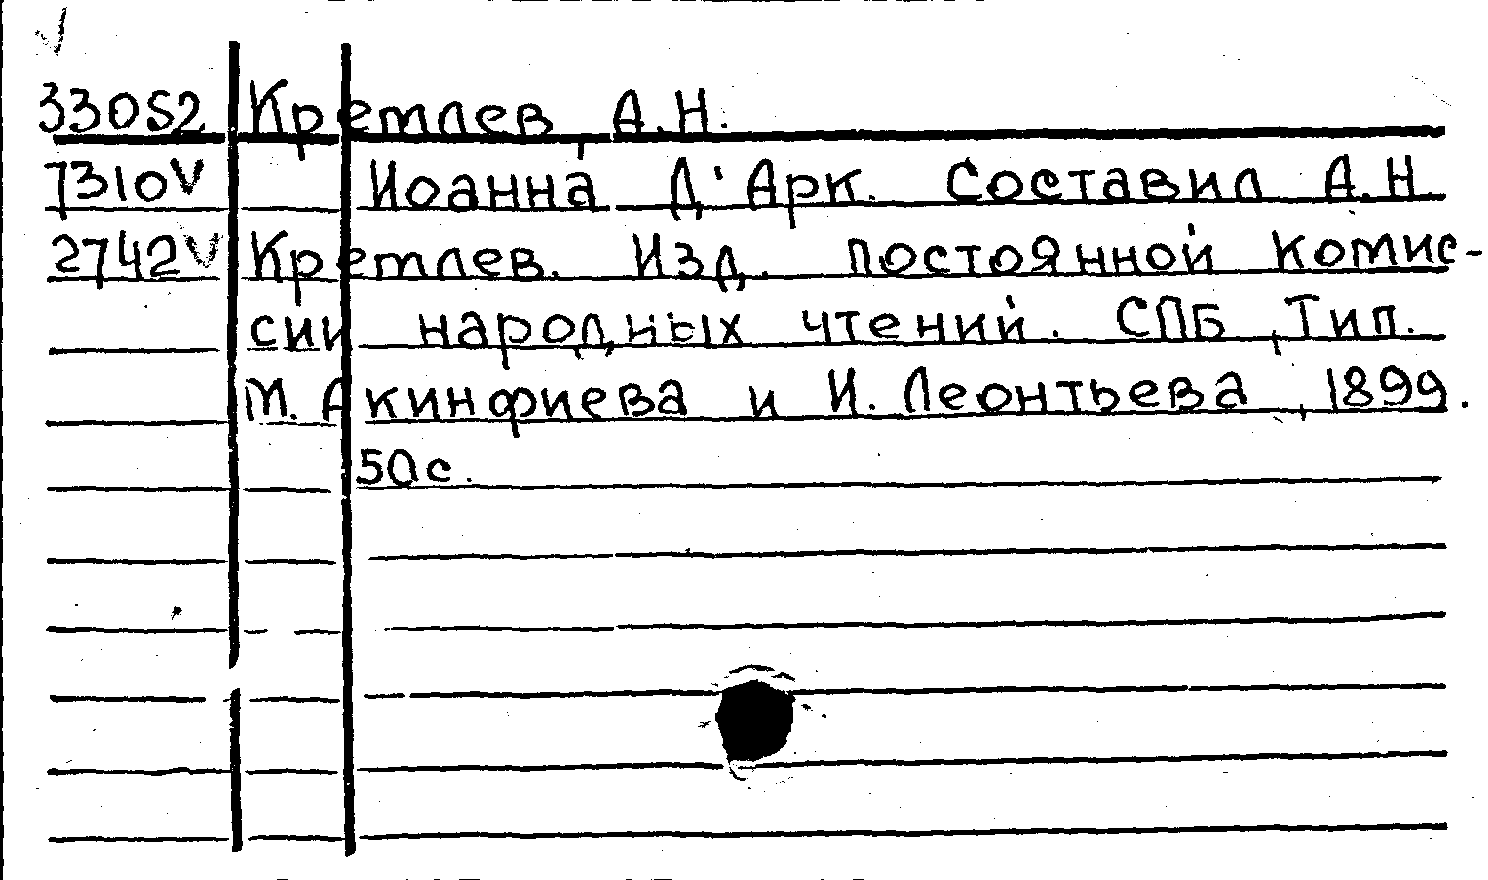 33052 Кремлев, А.Н.
7310V Иоанна Д'Арк. Составил А.Н.
2742V Кремлев. Изд. постоянной комис-
сии народных чтений. СПБ, Тип.
М. Акинфиева и И. Леонтьева, 1899.
50с.